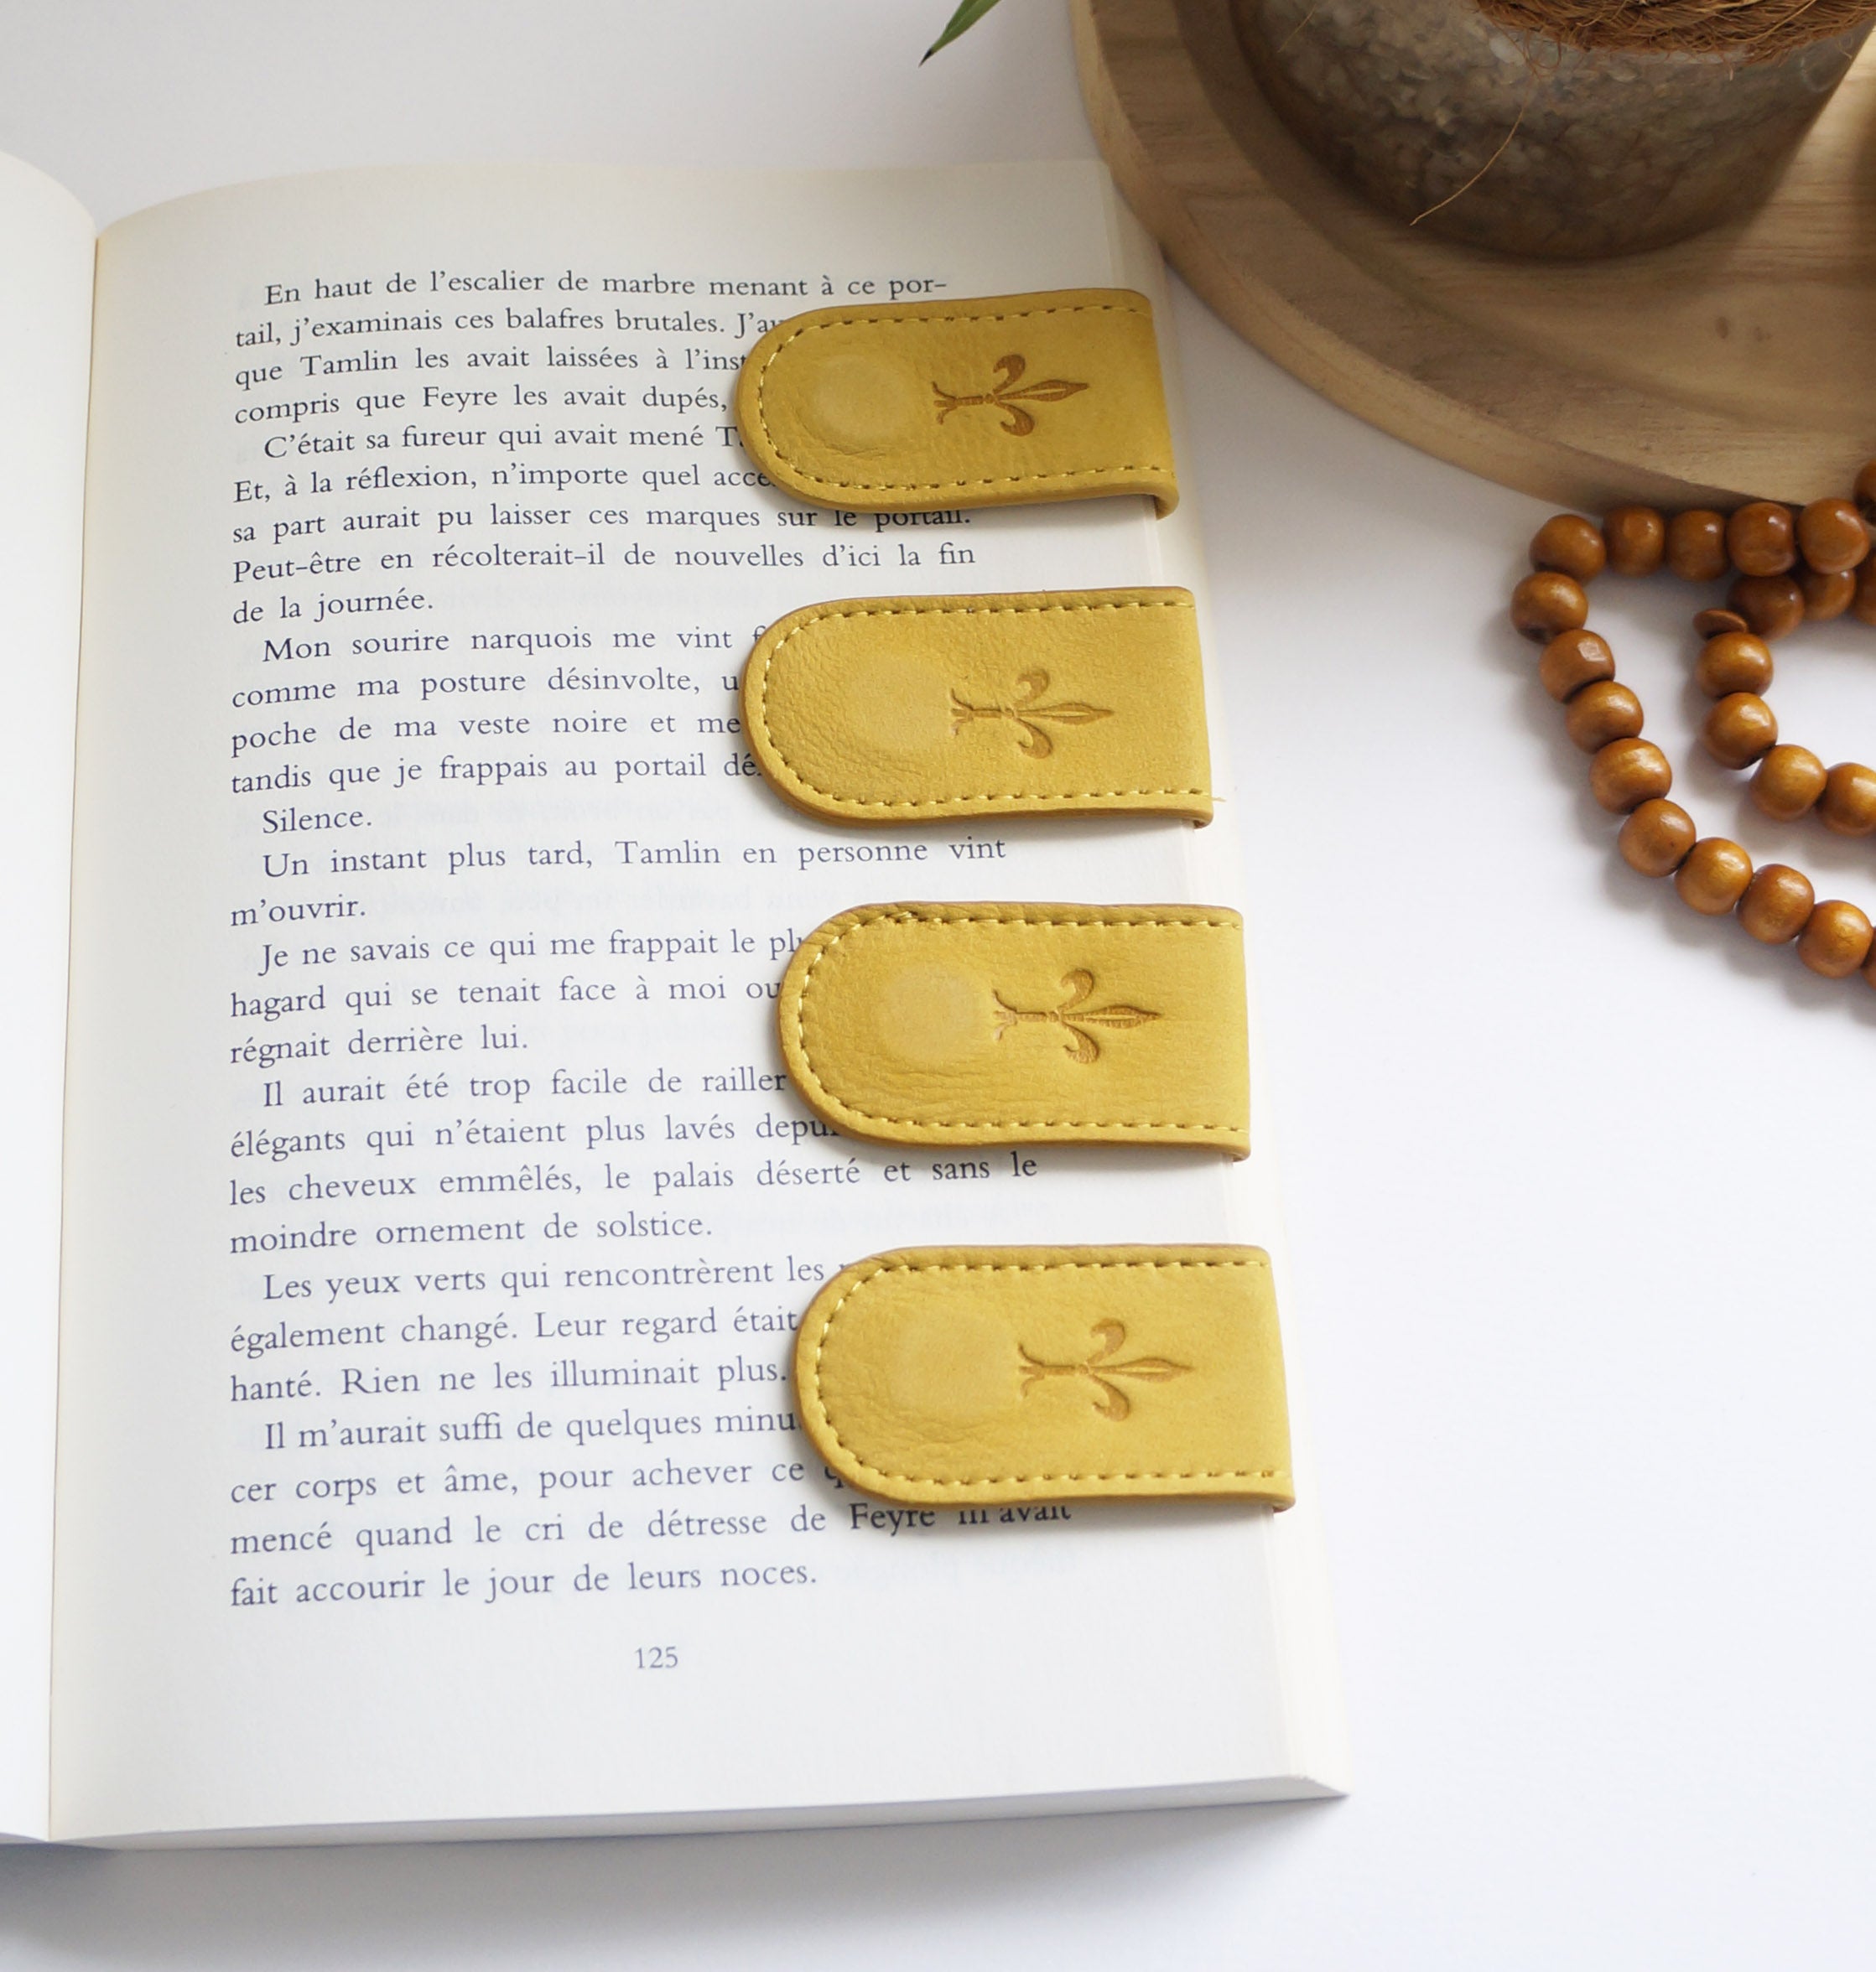 En haut de l'escalier de marbre menant à ce por-
tail, j'examinais ces balafres brutales.
que Tamlin les avait laissées à
compris que Feyre les avait dupés,
C'était sa fureur qui avait mené
Et, à la réflexion, n'importe quel
sa part aurait pu laisser ces marques sur le portail.
Peut-être en récolterait-il de nouvelles d'ici la fin
de la journée.
Mon sourire narquois me vint
comme ma posture désinvolte,
poche de ma veste noire et
tandis que je frappais au portail
Silence.
Un instant plus tard, Tamlin en personne vint
m'ouvrir.
Je ne savais ce qui me frappait le
hagard qui se tenait face à moi ou
régnait derrière lui.
Il aurait été trop facile de railler
élégants qui n'étaient plus lavés
les cheveux emmêlés, le palais déserté et sans le
moindre ornement de solstice.
Les yeux verts qui rencontrèrent les
également changé. Leur regard était
hanté. Rien ne les illuminait plus.
Il m'aurait suffi de quelques
cer corps et âme, pour achever ce
mencé quand le cri de détresse de Feyre m'avait
fait accourir le jour de leurs noces.
125